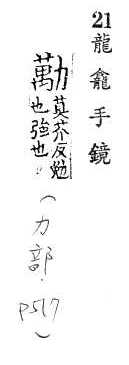 21龍龕手鏡
勱莫芥反勉
也強也
(力部.P517)